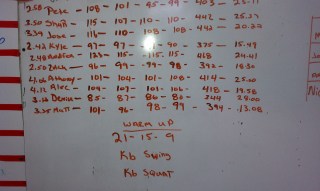 2:58 Pete - 108 - 101 - 95 - 99 403 - 23.11
3:30 Shan - 115 - 107 - 110 - 110 - 442 - 25.27
3:34 Jose - 116 - 110 - 108 - 108 - 442 - 20.22
2:42 Kyle - 97 - 97 - 91 - 90 375 - 15.49
- 123 - 115 - 115 - 115 - 468 24.41
2:50 Zach - 96 - 99 - 99 - 98 - 392 - 18.30
4:06 Anthony - 101 - 104 - 101 - 108 - 414 - 25.00
4:12 Alec - 104 - 107 - 101 - 106 - 418 - 19.58
3:10 Denise - 85 - 87 - 82 - 344 - 28.00
3:35 Matt - 101 - 96 - 98 - 99 - 394 - 13.08
WARM UP
21-15-9
Kb Swing
Kb SQUAT